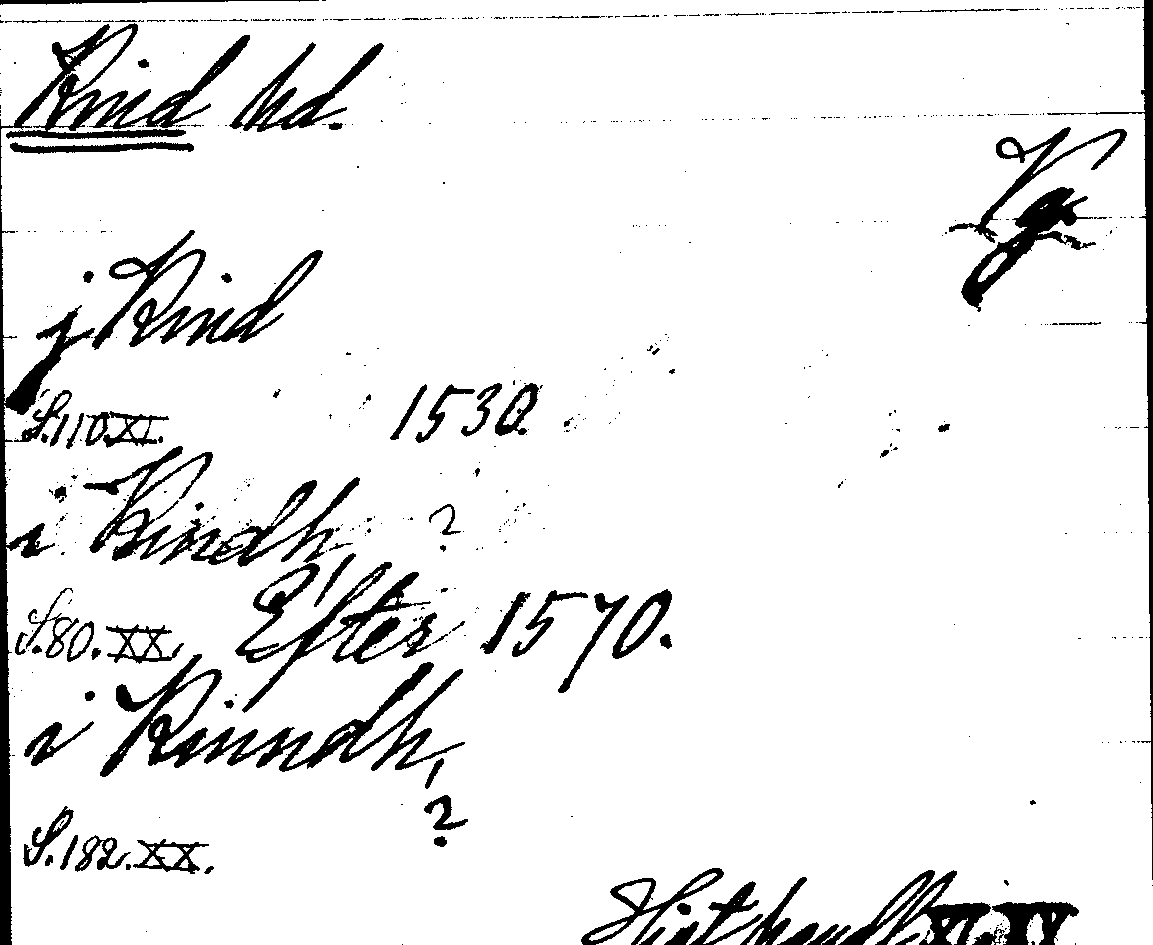 Kind hd.
Vg.
j Kind
S.110.XI. 1530.
i Kindh, ?
S.80.XX. Efter 1570.
i Kinndh,
?
S.182.XX.
Hist. handl. XI. XX